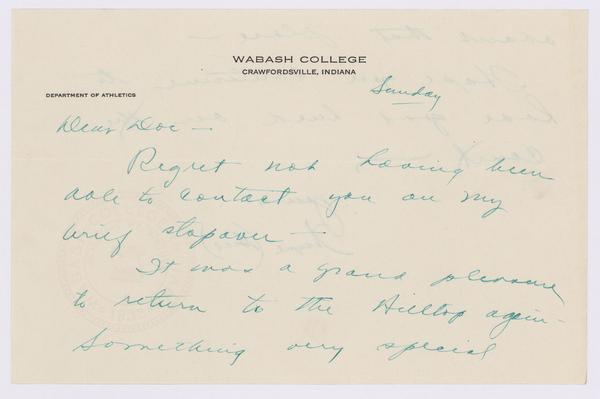 WABASH COLLEGE
CRAWFORDSVILLE, INDIANA
DEPARTMENT OF ATHLETICS
Sunday
Dear Doc —
Regret not having been
able to contact you on my
brief stopover —
It was a grand pleasure
to return to the Hilltop again —
Something very special